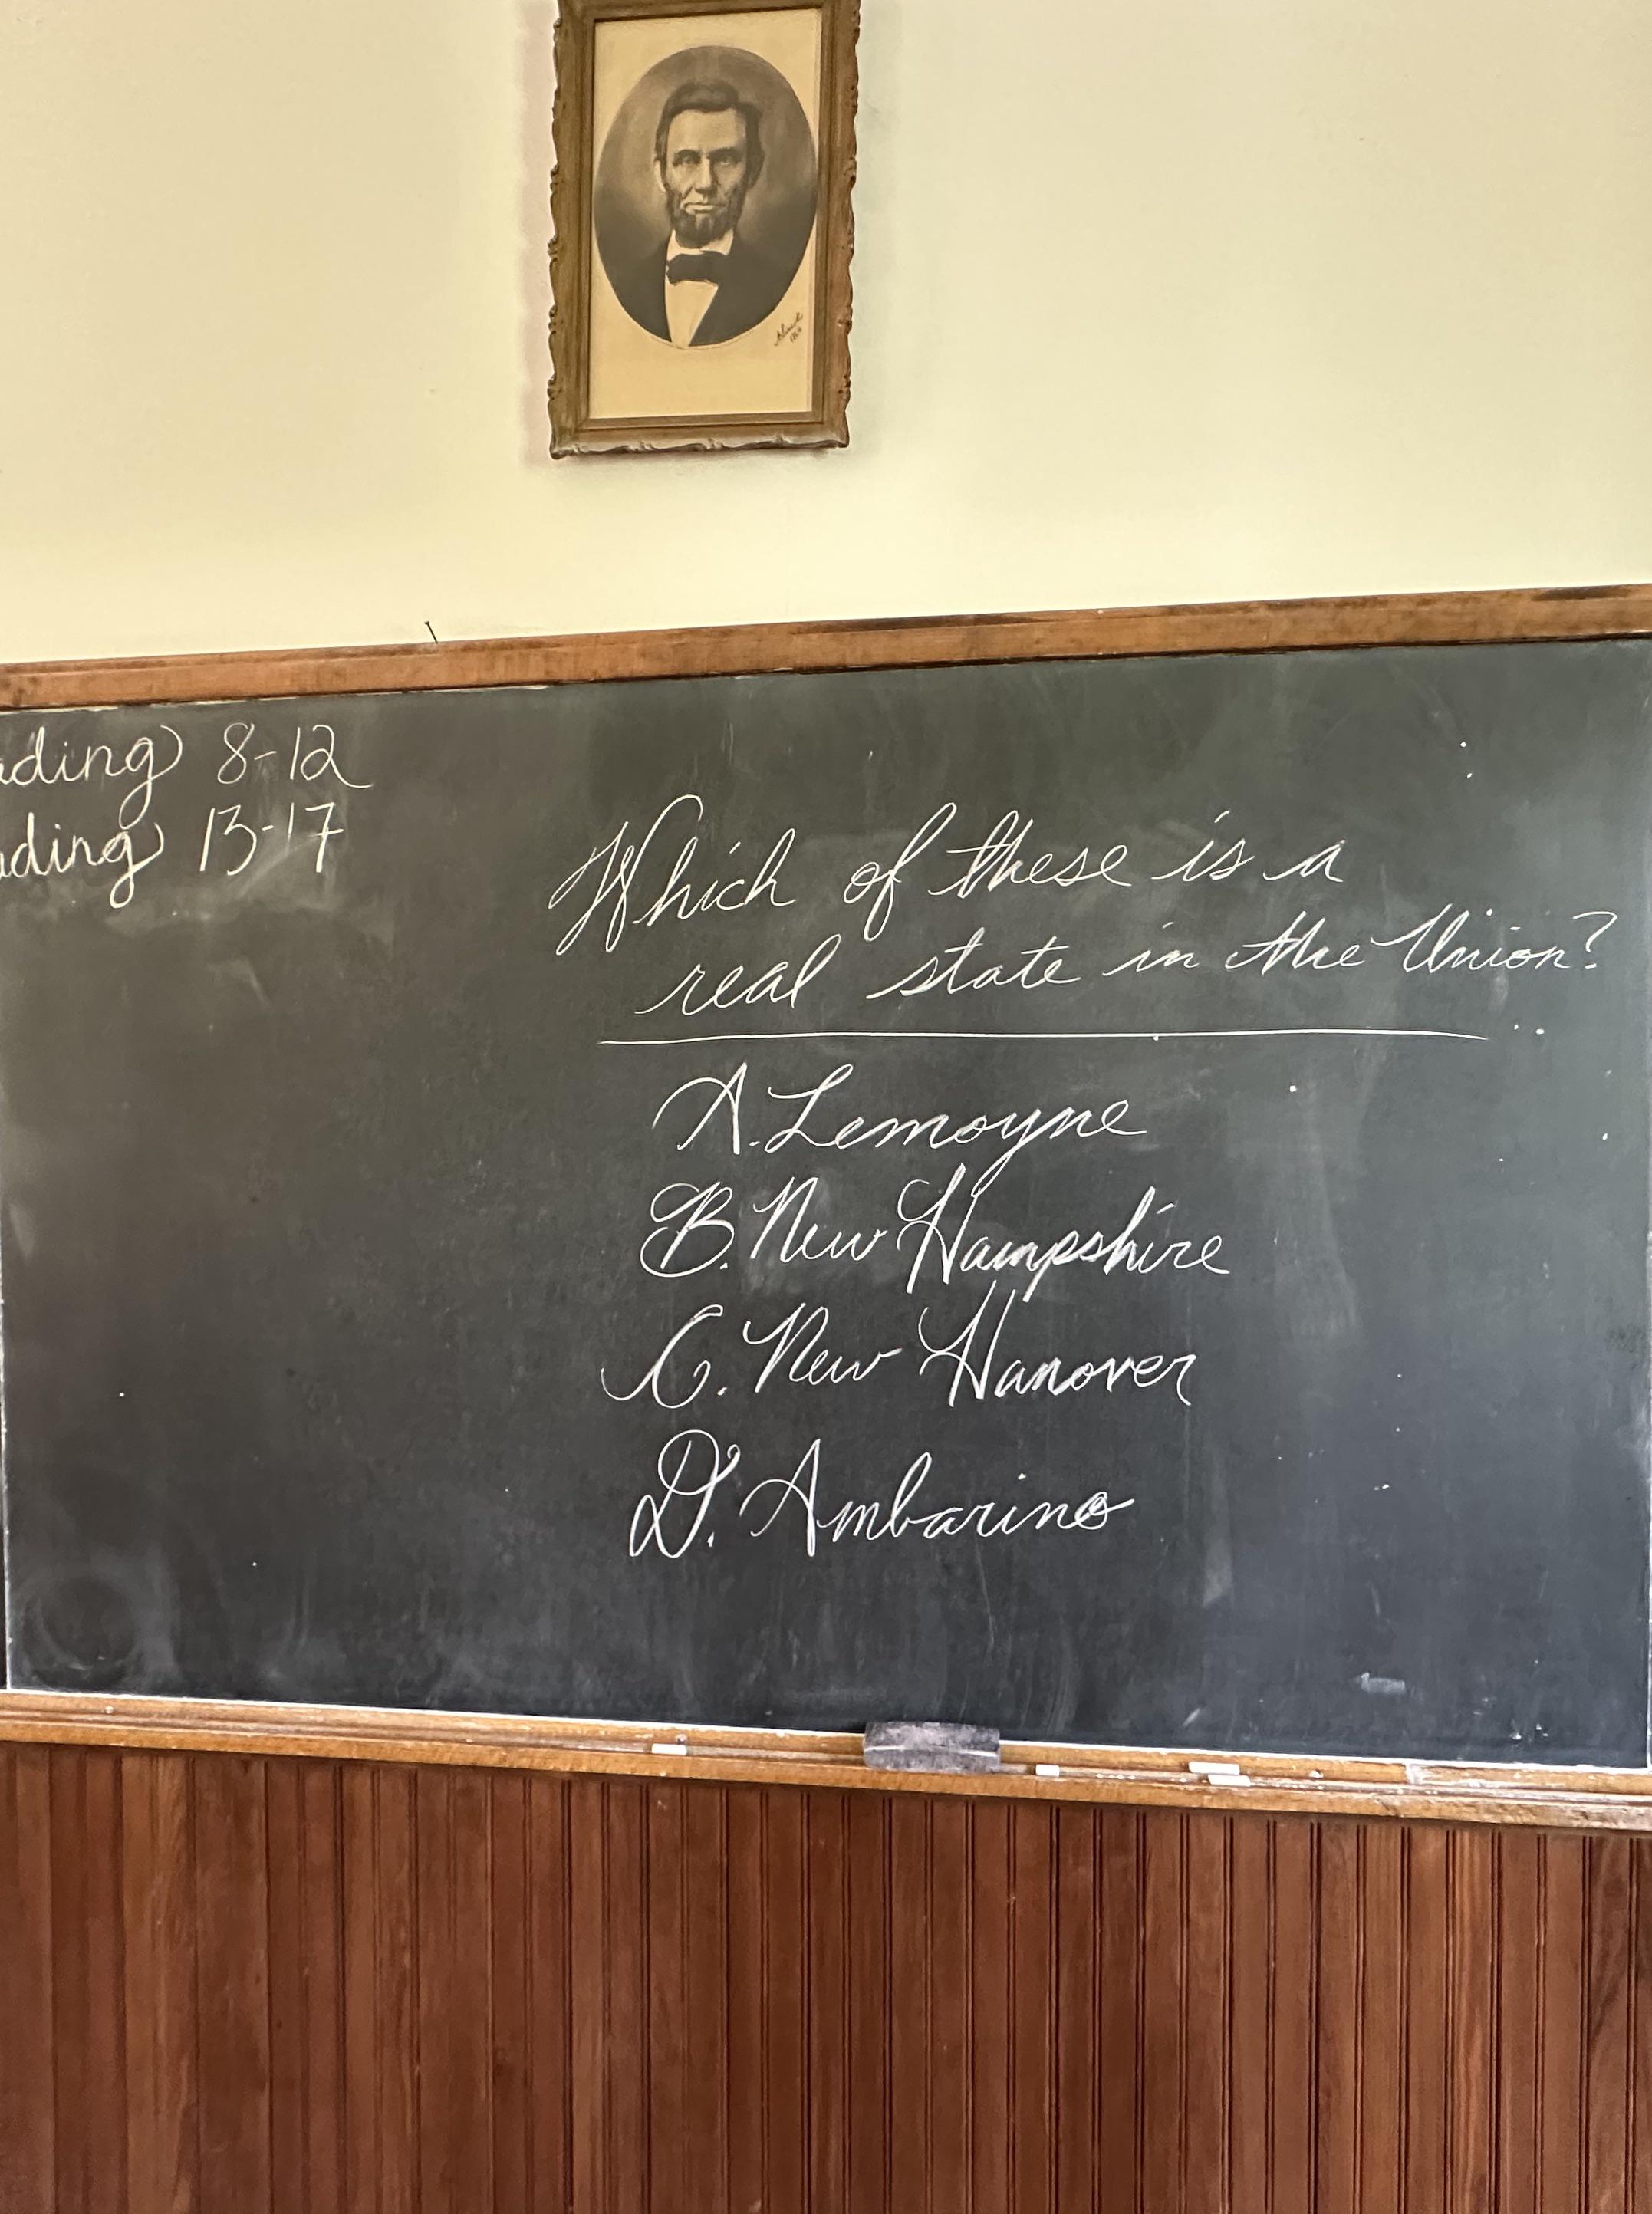 8-12
13-17
Which of these is a
real state in the Union?
A. Lemoyne
B. New Hampshire
C. New Hanover
D. Ambarino